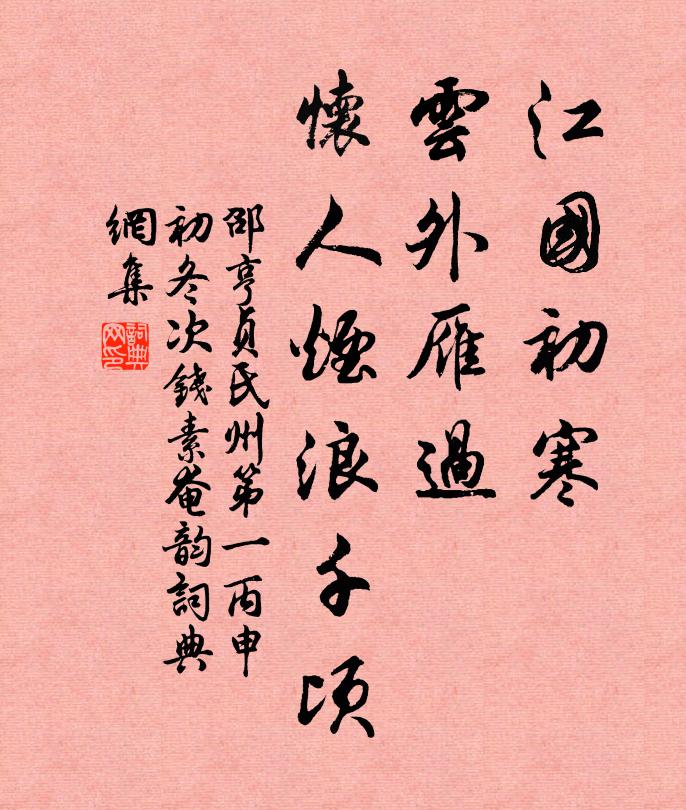 江國初寒
雲外雁過
懷人煙浪千頃
邵亨貞氏州第一丙申
初冬次錢素菴韵詞典
網集
詞典網印